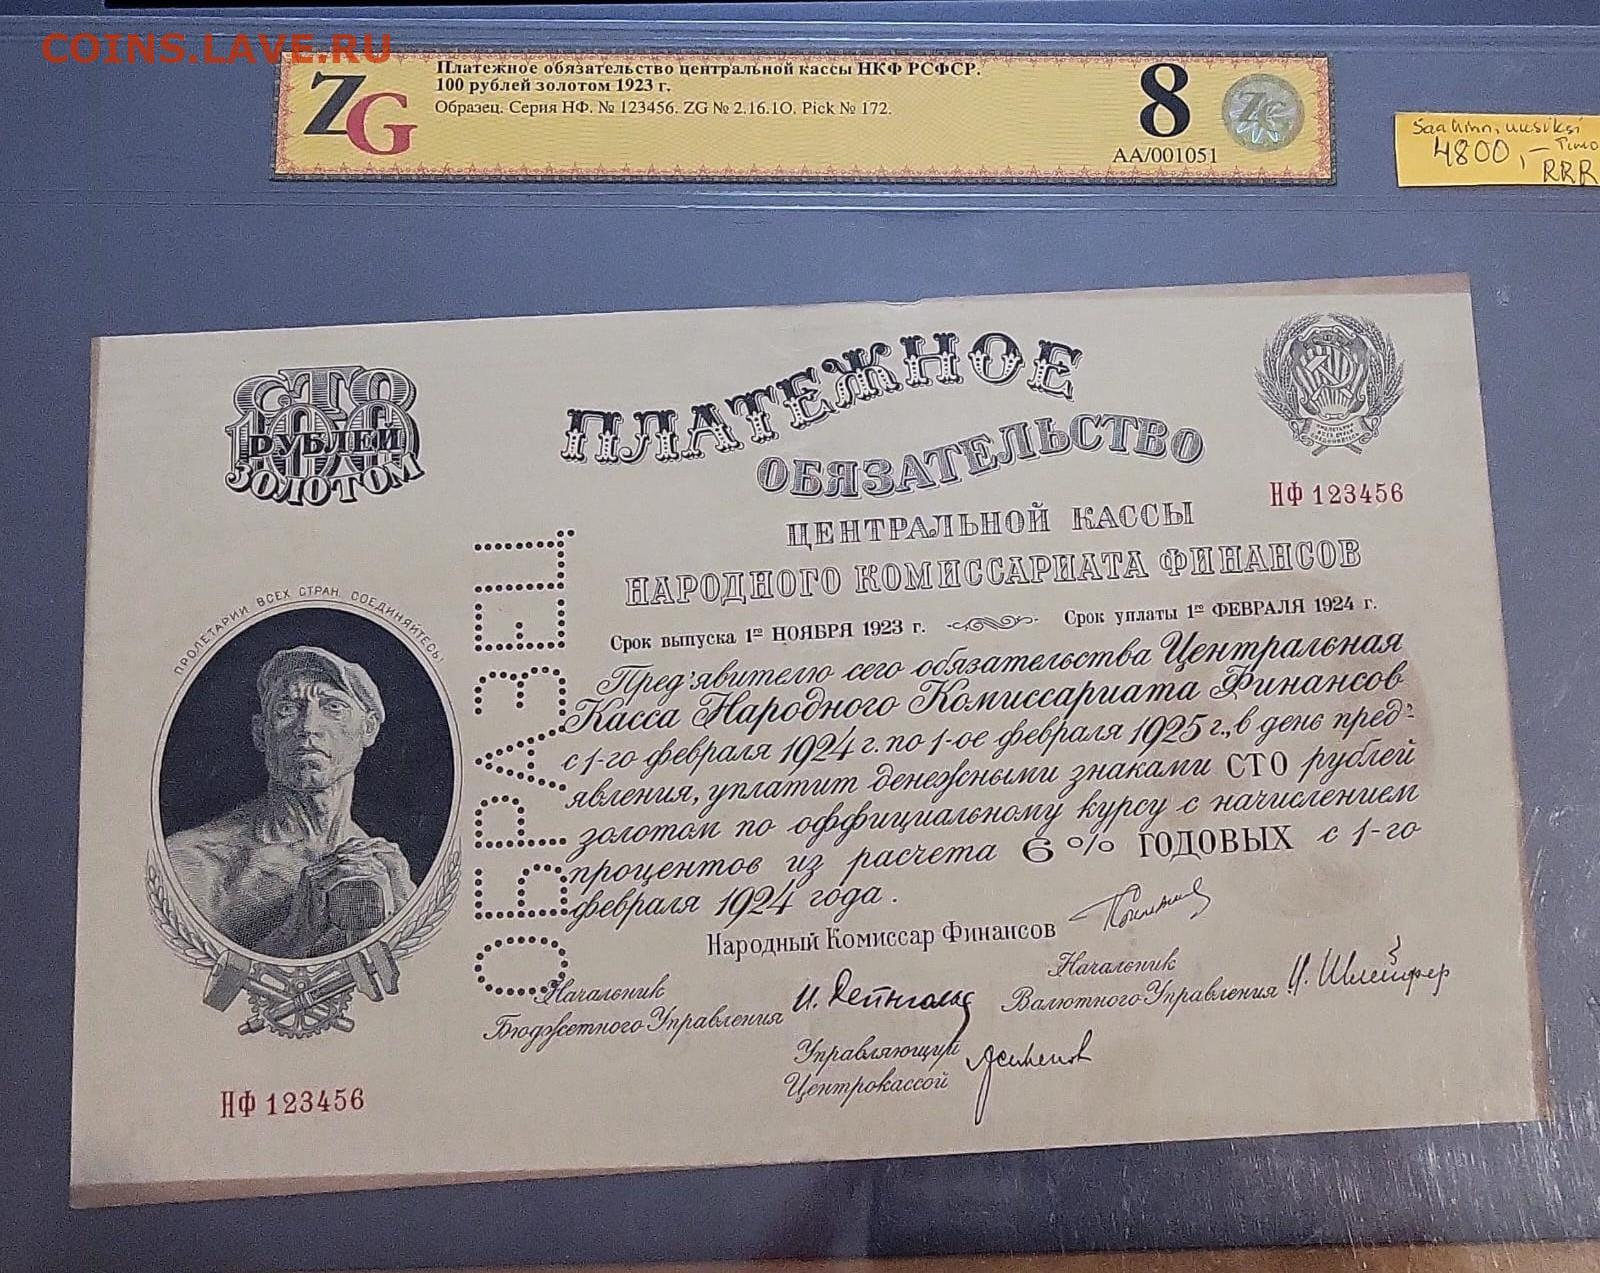 COINS.LAVE.RU
ZG
Платежное обязательство центральной кассы НКФ РСФСР.
100 рублей золотом 1923 г.
Образец. Серия НФ. № 123456. ZG № 2.16.1О. Pick № 172.
8
AA/001051
ZG
4800,-
Timo
RRR
СТО
100
РУБЛЕЙ
ЗОЛОТОМ
ПЛАТЕЖНОЕ
ОБЯЗАТЕЛЬСТВО
ЦЕНТРАЛЬНОЙ КАССЫ
НАРОДНОГО КОМИССАРИАТА ФИНАНСОВ
НФ 123456
Срок выпуска 1го НОЯБРЯ 1923 г. Срок уплаты 1го ФЕВРАЛЯ 1924 г.
Пред'явителю сего обязательства Центральная
Касса Народного Комиссариата Финансов
с 1-го февраля 1924 г. по 1-ое февраля 1925 г., в день пред'-
явления, уплатит денежными знаками СТО рублей
золотом по оффициальному курсу с начислением
процентов из расчета 6% ГОДОВЫХ с 1-го
февраля 1924 года.
ОБРАЗЕЦ
ПРОЛЕТАРИИ ВСЕХ СТРАН, СОЕДИНЯЙТЕСЬ!
Народный Комиссар Финансов
Начальник
Бюджетного Управления
И. Рейнгольд
Начальник
Валютного Управления
И. Шлейфер
Управляющий
Центрокассой
НФ 123456